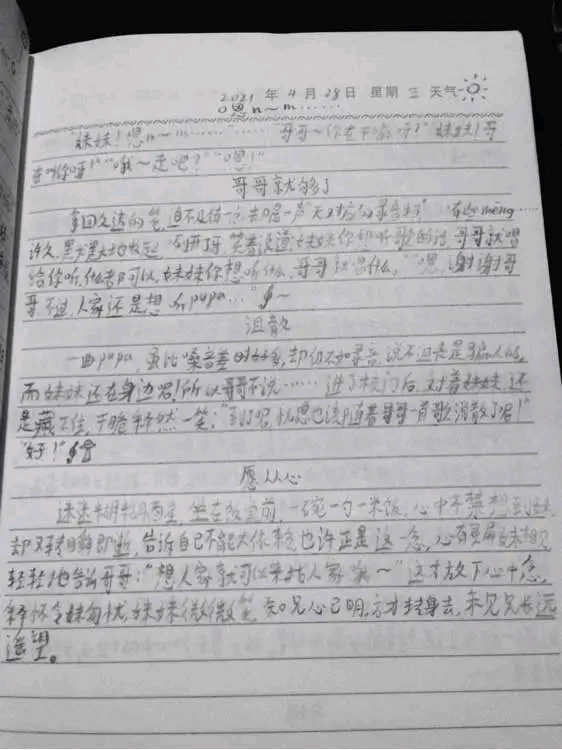 2021 年 4 月 28 日 星期 三 天气
嗯 n~m……
"妹妹!嗯n~m…… 哥哥~你在干嘛呀?""妹妹!哥
在听你呀!""哦~走吧?""嗯!"
哥哥就够了
拿回久违的笔,迫不及待 却是一声"天 有些mēng……
许久, 笑着说道:妹妹你想听歌的话,哥哥就唱
给你听,什么都可以,妹妹你想听什么,哥哥就唱什么。""嗯,谢谢哥
哥,不过,人家还是想听papa…"~
沮散
一曲papa,虽比嗓音差 却仍不如录音,说不沮丧是骗人的,
而妹妹还在身边呢!所以哥哥不说……进了校门后,对着妹妹,还
是藏不住,干脆释然一笑,"到了呢,忧愁也该随着哥哥一首歌消散了呢!"
"好!"
愿从心
迷迷糊糊 坐在饭堂前,一碗一勺一米饭,心中不禁想到妹
却又转瞬即逝,告诉自己不能 也许正是这一念,心有 妹相见
轻轻地告诉哥哥:"想人家就可以来找人家哦~"这才放下心中念,
释怀令妹勿忧,妹妹微微笑,知兄心已明,方才转身去,亲见兄长远
遥望。